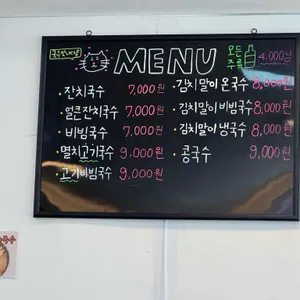 MENU
모든
주류 4,000냥
잔치국수 7,000원
얼큰잔치국수 7,000원
비빔국수 7,000원
멸치고기국수 9,000원
고기비빔국수 9,000원
김치말이 온국수 8,000원
김치말이 비빔국수 8,000원
김치말이 냉국수 8,000원
콩국수 9,000원